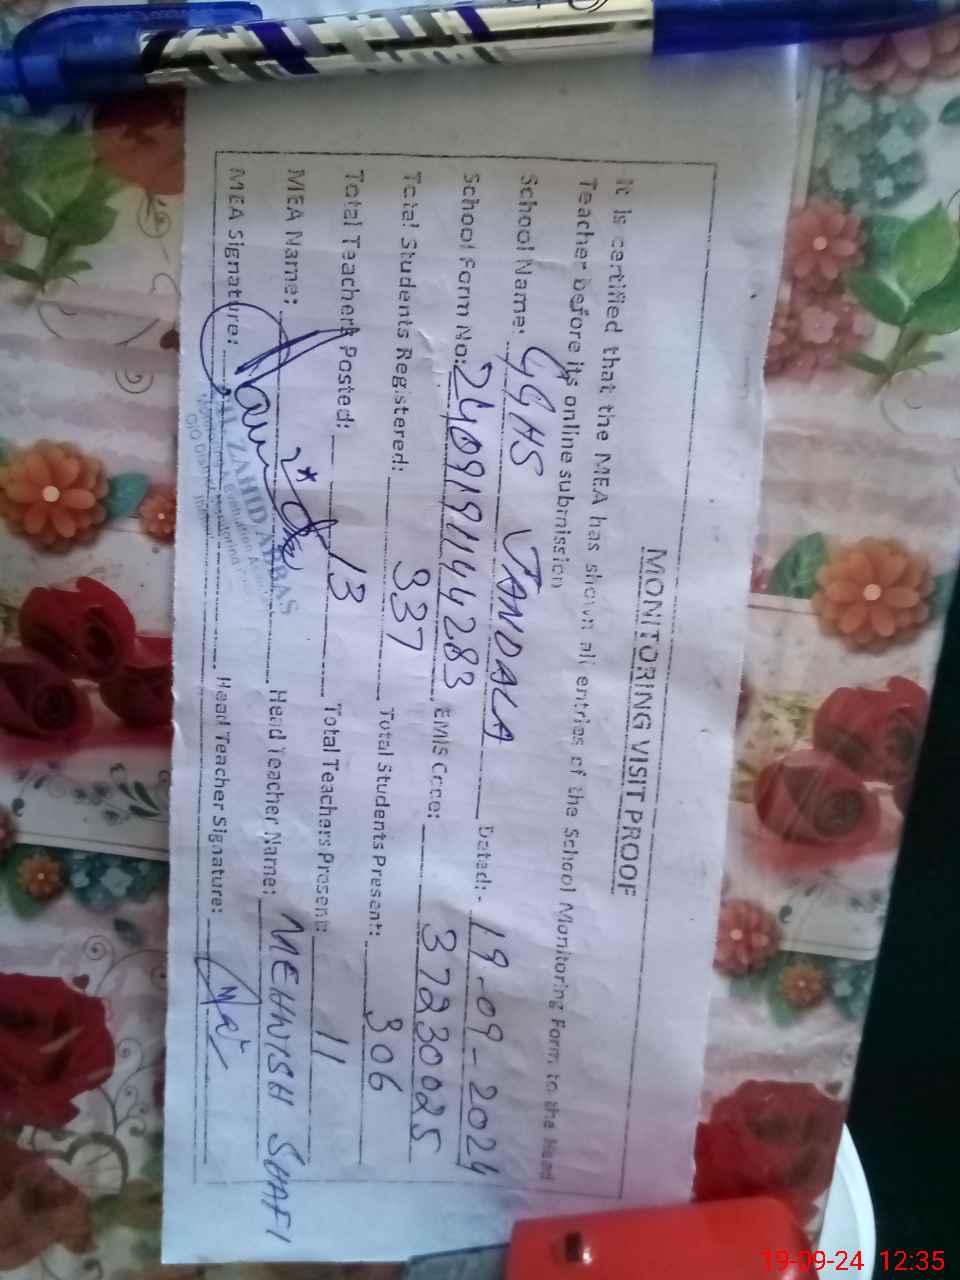 MONITORING VISIT PROOF
It is certified that the MEA has shown all entries of the School Monitoring Form to the Head
Teacher before its online submission
School Name: GGHS JANDALA Dated:- 19-09-2024
School Form No: 2409191144283, EMIS Code: 37230025
Total Students Registered: 337 Total Students Present: 306
Total Teachers Posted: 13 Total Teachers Present: 11
MEA Name: Head Teacher Name: MEHWISH SHAFI
ZAHID ABBAS
MEA Signature: Head Teacher Signature:
19-09-24 12:35